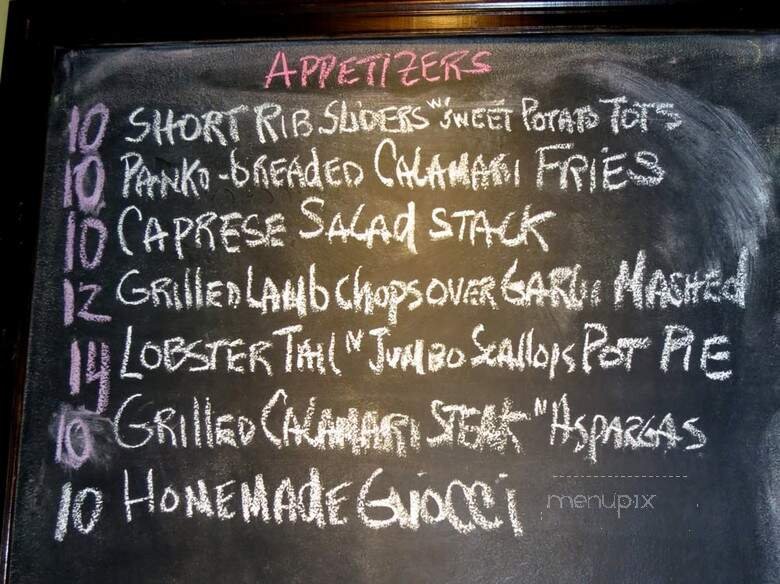 APPETIZERS
10 SHORT RIB SLIDERS w/ SWEET POTATO TOTS
10 PANKO-BREADED CALAMARI FRIES
10 CAPRESE SALAD STACK
12 GRILLED LAMB CHOPS OVER GARLIC MASHED
14 LOBSTER TAIL N JUMBO SCALLOPS POT PIE
10 GRILLED CALAMARI STEAK N ASPARGAS
10 HOMEMADE GNOCCI
menupix